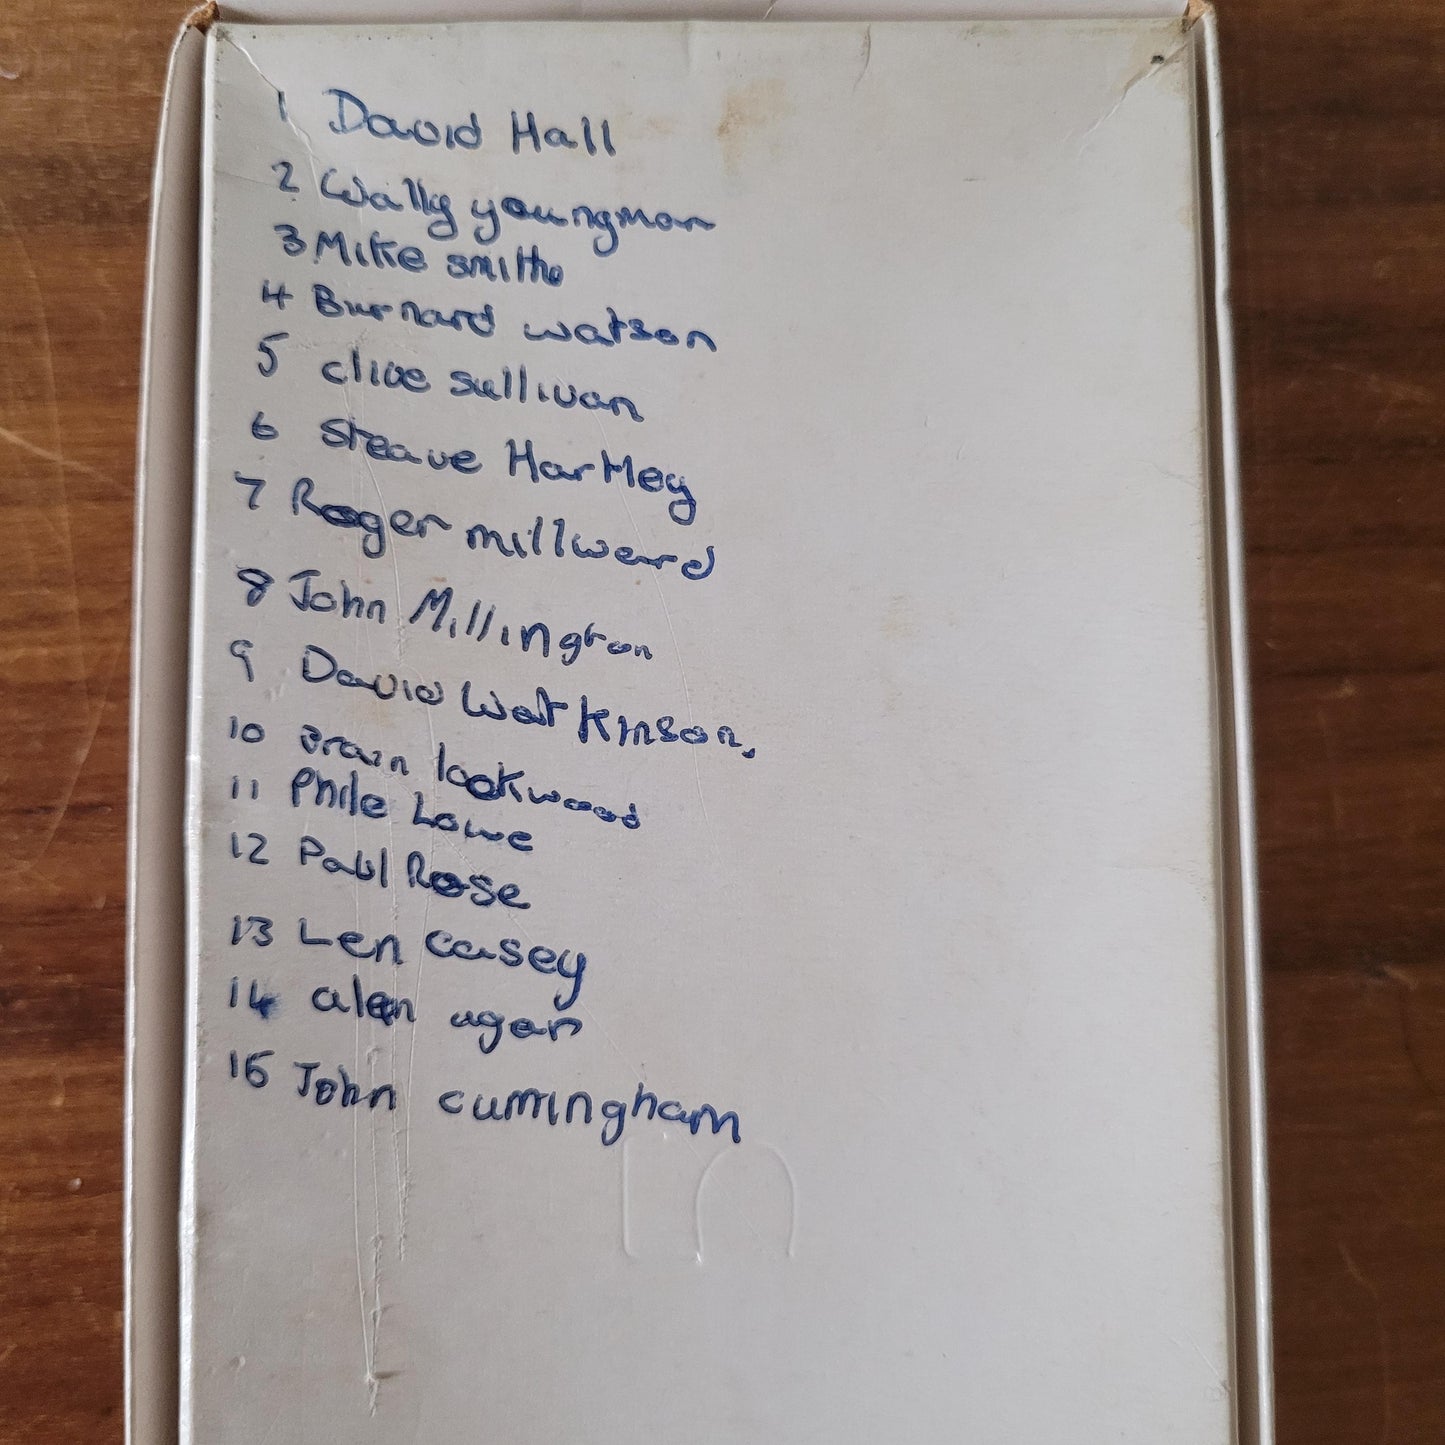 1 David Hall
2 Wally youngman
3 Mike smith
4 Burnard watson
5 clive sullivan
6 Steave Hartley
7 Roger millward
8 John Millington
9 David Watkinson.
10 Brain lockwood
11 Phile Lowe
12 Paul Rose
13 Len casey
14 alan agar
15 John cunningham